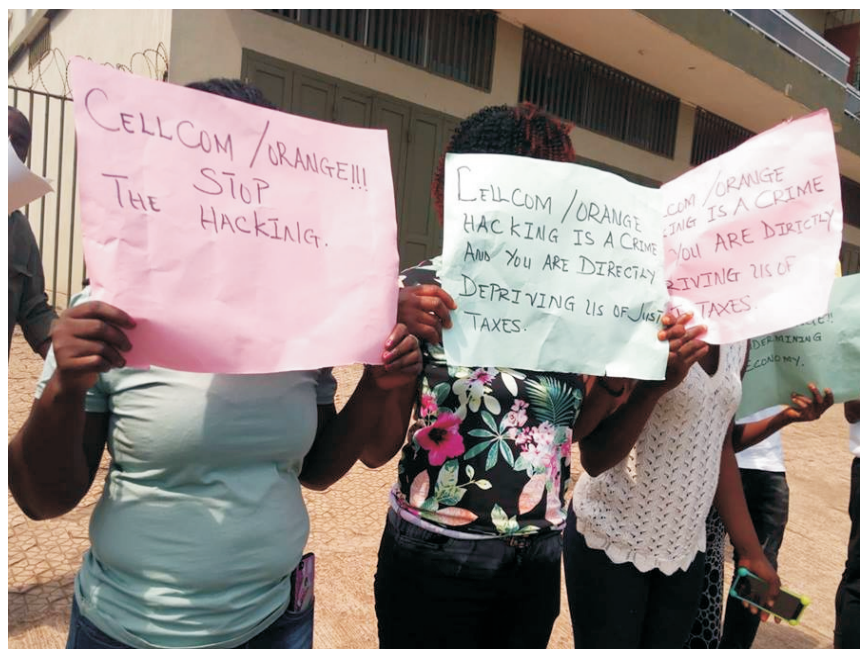 CELLCOM /ORANGE!!!
STOP
THE HACKING.
CELLCOM /ORANGE
HACKING IS A CRIME
AND YOU ARE DIRECTLY
DEPRIVING US OF JUST
TAXES.
COM /ORANGE
ING IS A CRIME
YOU ARE DIRICTLY
RIVING US OF
TAXES.
DERMINING
CONOMY.